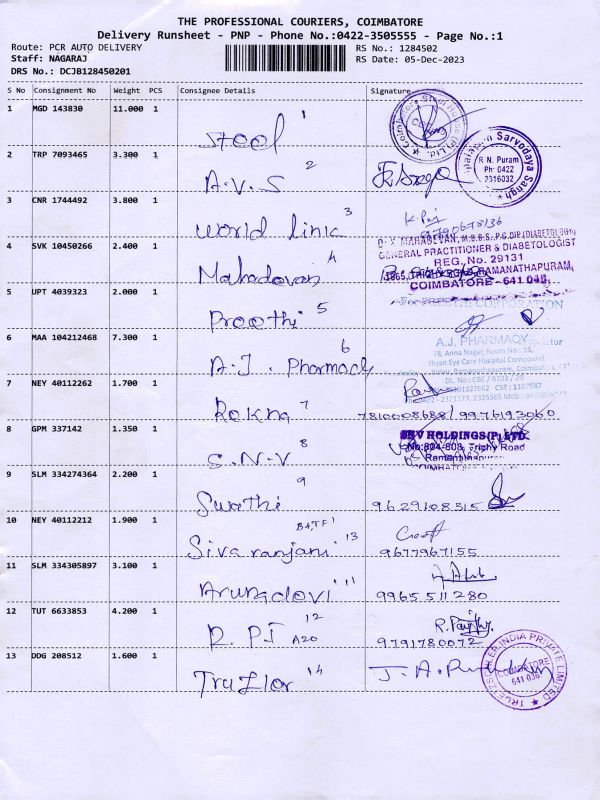 THE PROFESSIONAL COURIERS, COIMBATORE
Delivery Runsheet - PNP - Phone No.:0422-3505555 - Page No.:1
Route: PCR AUTO DELIVERY
Staff: NAGARAJ
DRS No.: DCJB128450201
RS No.: 1284502
RS Date: 05-Dec-2023
S No Consignment No Weight PCS Consignee Details Signature
1 MGD 143830 11.000 1
Steel 1
2 TRP 7093465 3.300 1
A.V.S 2
Sarvodaya Sangh
R N. Puram
Ph: 0422
2316032
3 CNR 1744492 3.800 1
World link 3
9790678136
4 SVK 10450266 2.400 1
Mahadevan 4
MAHADEVAN, M.B.B.S., P.G.DIP.(DIABETOLOGY)
GENERAL PRACTITIONER & DIABETOLOGIST
REG. No. 29131
RAMANATHAPURAM,
COIMBATORE - 641 045
5 UPT 4039323 2.000 1
Preethi 5
CORPORATION
6 MAA 104212468 7.300 1
A.J. Pharmacy 6
A.J. PHARMACY
78, Anna Nagar, Room No : 15,
Eye Care Hospital Compound,
DL No : CBE / 6103 / 20
7 NEY 40112262 1.700 1
Rokna 7
7810008688 / 9976193060
8 GPM 337142 1.350 1
S.N.V 8
SNV HOLDINGS (P) LTD.
No:804-808, Trichy Road
9 SLM 334274364 2.200 1
Swathi 9
9629108315
10 NEY 40112212 1.900 1
Siva ranjani 13
9677967155
11 SLM 334305897 3.100 1
Arunadevi 11
9965511280
12 TUT 6633853 4.200 1
R.PI A20 12
9791780072
13 DDG 208512 1.600 1
Truzlor 14
INDIA PRIVATE LIMITED
COIMBATORE